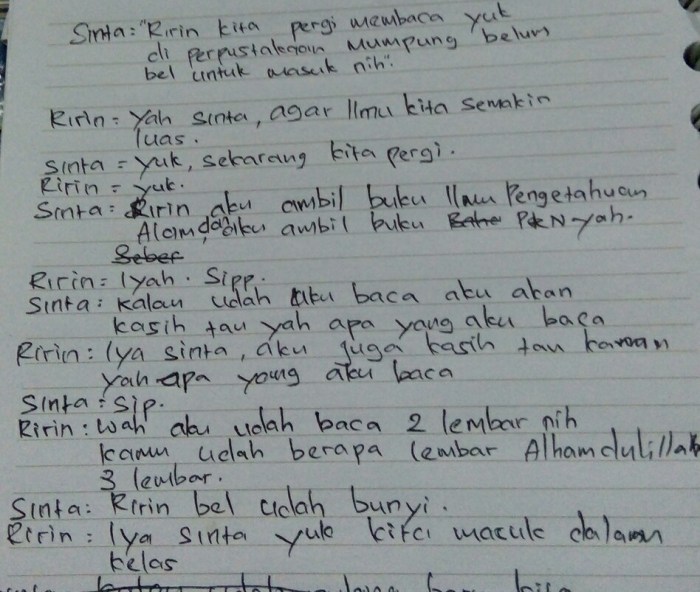 Sinta: "Ririn kita pergi membaca yuk
di perpustakaan Mumpung belum
bel untuk masuk nih".
Ririn = Yah Sinta, agar Ilmu kita semakin
luas.
Sinta = Yuk, sekarang kita pergi.
Ririn = yuk.
Sinta: Ririn aku ambil buku Ilmu Pengetahuan
Alam, dan aku ambil buku PKN yah.
Seber
Ririn: Iyah. Sipp.
Sinta: Kalau udah aku baca aku akan
kasih tau yah apa yang aku baca
Ririn: Iya sinta, aku juga kasih tau kamu
yah apa yang aku baca
Sinta: Sip.
Ririn: Wah aku udah baca 2 lembar nih
kamu udah berapa lembar Alhamdulillah
3 lembar.
Sinta: Ririn bel udah bunyi.
Ririn: Iya Sinta yuk kita masuk dalam
kelas